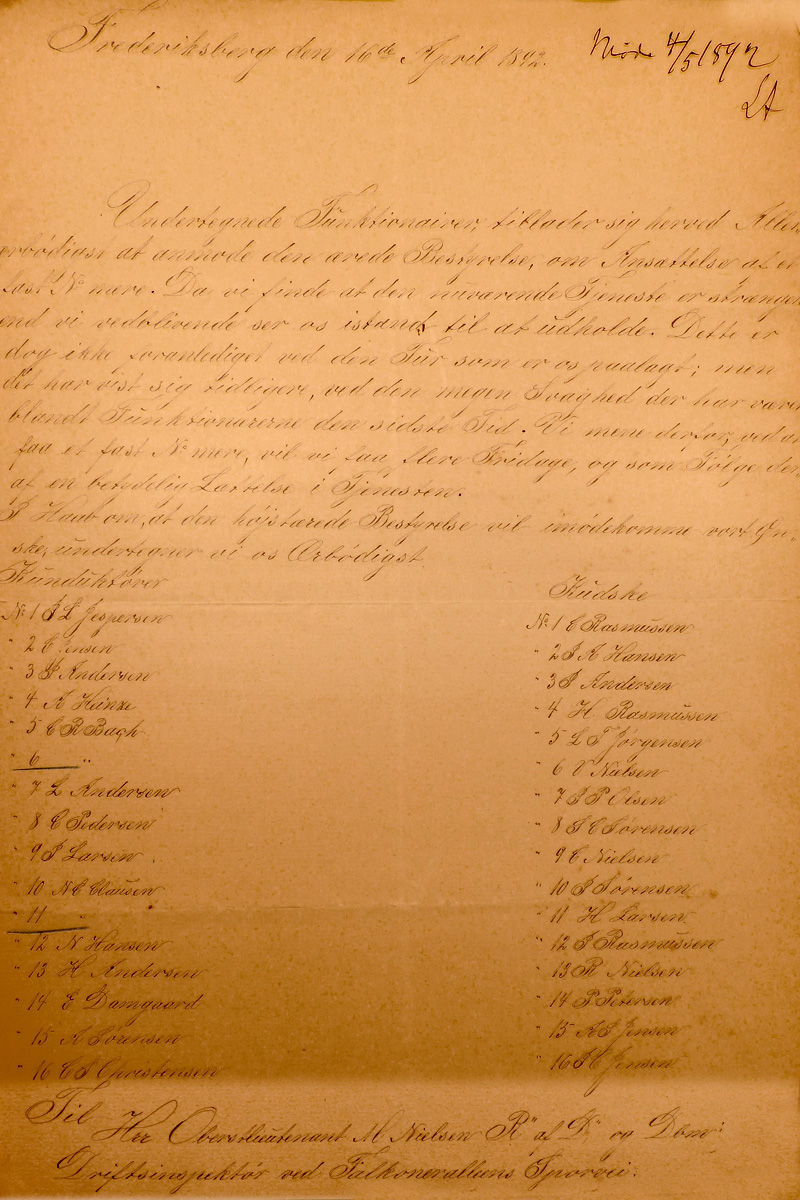 Frederiksberg den 16de April 1892.
Møde 4/5 1892
LA
Undertegnede Funktionairer, tillader sig herved Aller-
erbødigst at anmode den ærede Bestyrelse, om Ansættelse af et
fast No mere. Da vi finde at den nuværende Tjeneste er strænger
end vi vedblivende ser os istand til at udholde. Dette er
dog ikke foranlediget ved den Tur som er os paalagt; men
det har vist sig tidligere, ved den megen Svaghed der har været
blandt Funktionærerne den sidste Tid. Vi mene derfor, ved at
faa et fast No mere, vil vi faa flere Fridage, og som Følge der
af en betydelig Lættelse i Tjenesten.
I Haab om, at den højstærede Bestyrelse vil imødekomme vort Øn-
ske, undertegner vi os Ærbødigst
Kunduktører
No 1 J L Jespersen
" 2 C Jensen
" 3 J Andersen
" 4 A Heinze
" 5 C R Bach
" 6 "
" 7 L Andersen
" 8 C Pedersen
" 9 J Larsen
" 10 N C Clausen
" 11 "
" 12 N Hansen
" 13 H Andersen
" 14 E Damgaard
" 15 A Sørensen
" 16 C J Christensen
Kudske
No 1 C Rasmussen
" 2 J A Hansen
" 3 J Andersen
" 4 H Rasmussen
" 5 L T Jørgensen
" 6 V Nielsen
" 7 J P Olsen
" 8 S C Sørensen
" 9 C Nielsen
" 10 J Sørensen
" 11 H Larsen
" 12 J Rasmussen
" 13 R Nielsen
" 14 P Petersen
" 15 A J Jensen
" 16 J C Jensen
Til
Her Oberstlieutenant M Nielsen R" af D" og Dbm:
Driftsinspektør ved Falkoneralleens Sporvei.